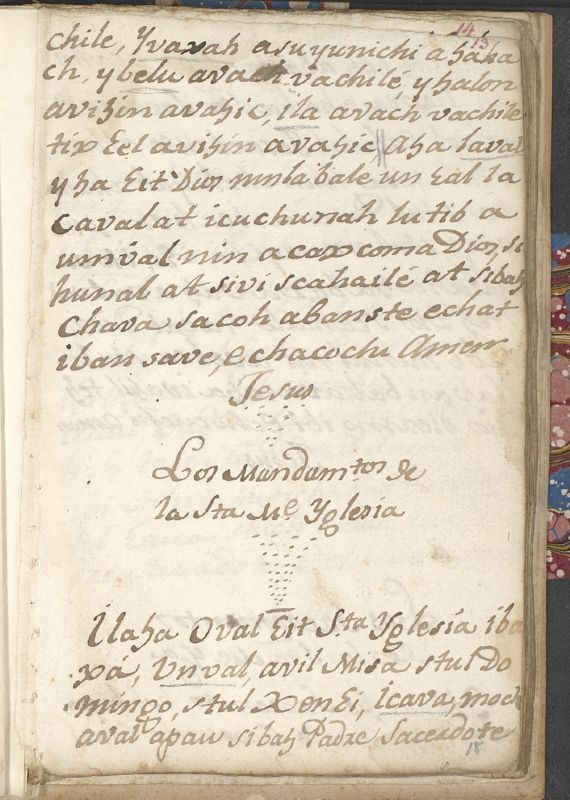 14
13
chile, Yvaxah asuyunichi a haha
ch, y belu avach vachilé, y halon
avihin avahic, ila avach vachile
tix Eel avihin avahic Aha laval
y ha Eit Dios mnlabale un hal la
Cavalat icuchunah lutib a
umval nin acaxcoma Dios, si
hunal at sivi scahailé at sibah
Chava sacoh abanste echat
iban save, echacochu Amen
Jesus
Los Mandamtos de
la Sta Me Yglesia
Ilaha Oval Eit Sta Yglesia iba
xa, Unval, avil Misa stul Do
mingo, stul Xen Ei, Icava, moch
aval apau sibah Padre Sacerdote
18